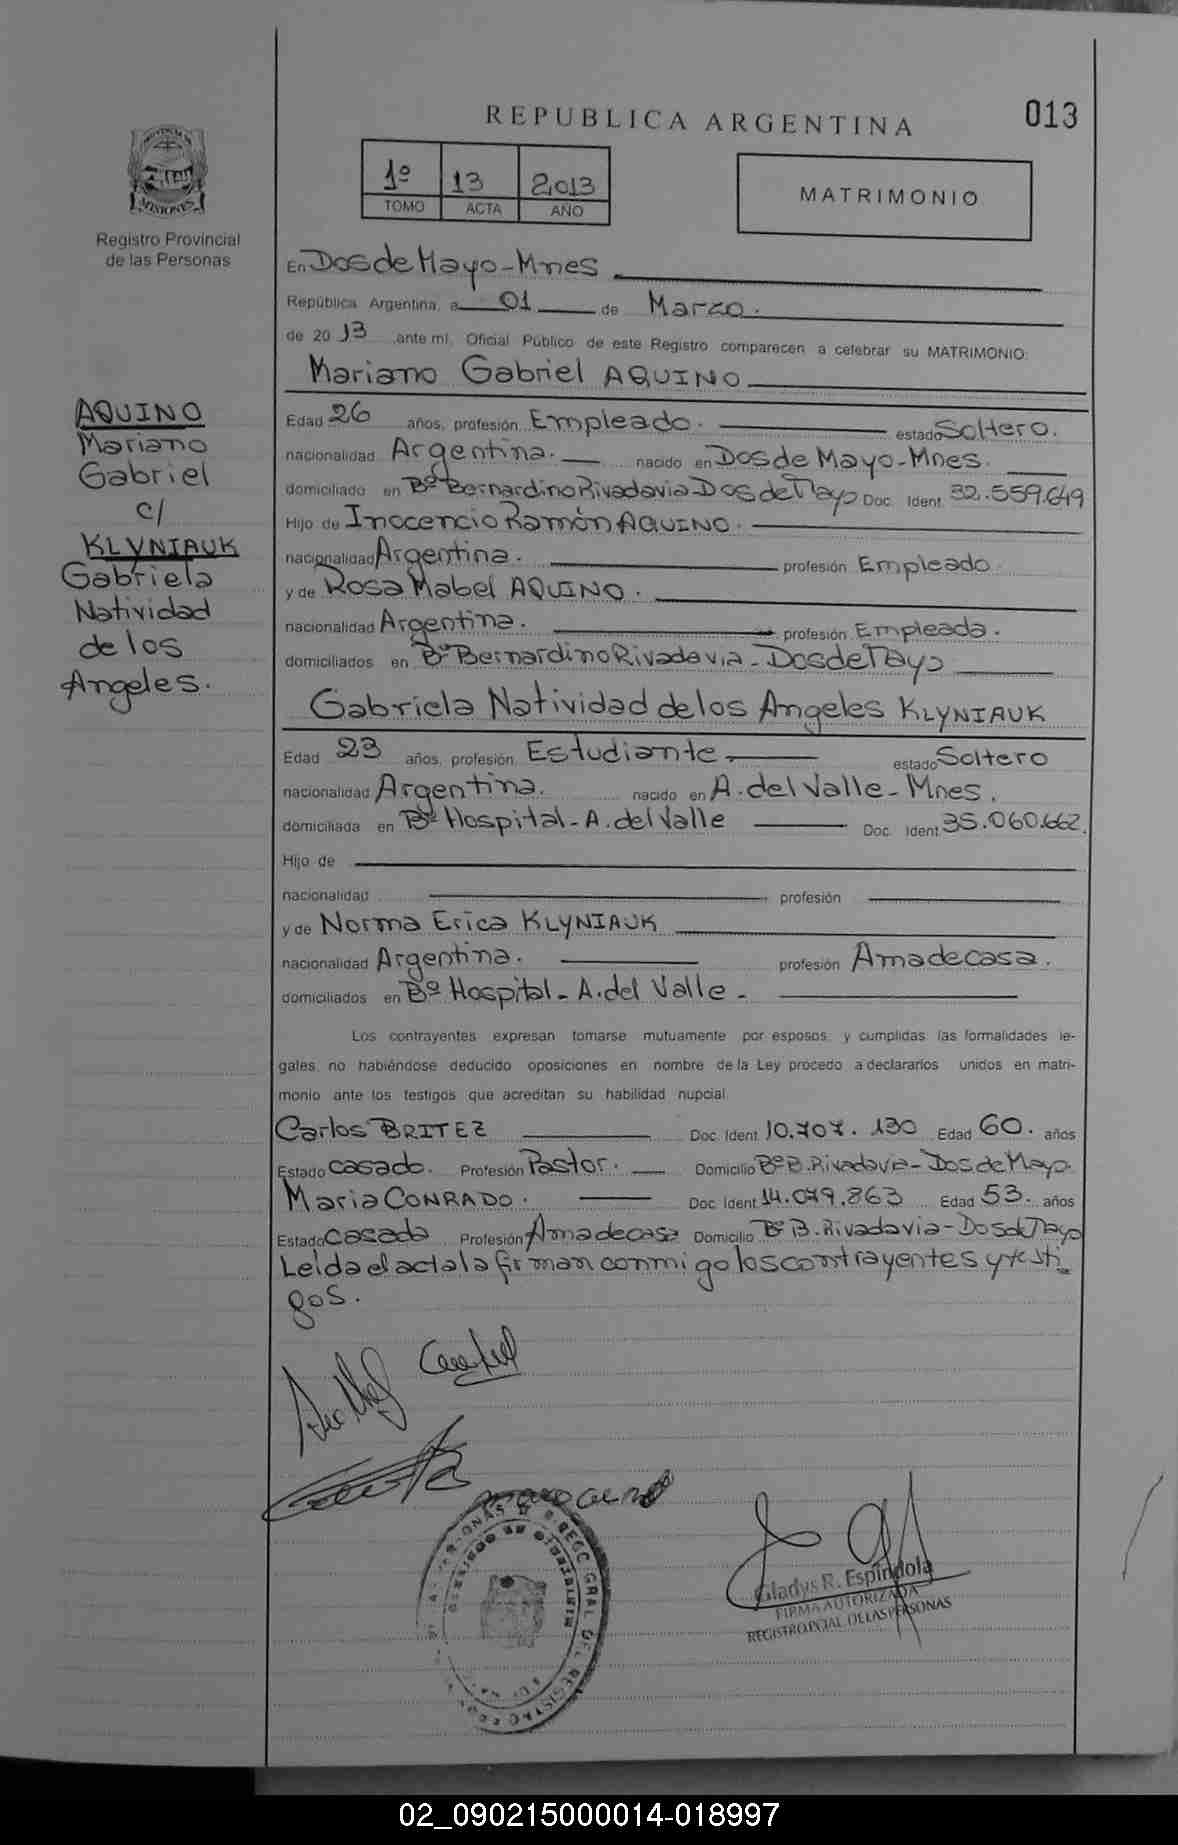 REPUBLICA ARGENTINA
013
PROVINCIA DE
MISIONES
Registro Provincial
de las Personas
1º 13 2013
TOMO ACTA AÑO
MATRIMONIO
En Dos de Mayo - Mnes
República Argentina, a 01 de Marzo.
de 2013 ante mí, Oficial Público de este Registro comparecen a celebrar su MATRIMONIO:
Mariano Gabriel AQUINO
AQUINO
Mariano
Gabriel
c/
KLYNIAUK
Gabriela
Natividad
de los
Angeles.
Edad 26 años, profesión Empleado. estado Soltero.
nacionalidad Argentina. nacido en Dos de Mayo-Mnes.
domiciliado en Bº Bernardino Rivadavia-Dos de Mayo Doc. Ident. 32.559.649
Hijo de Inocencio Ramón AQUINO.
nacionalidad Argentina. profesión Empleado.
y de Rosa Mabel AQUINO.
nacionalidad Argentina. profesión Empleada.
domiciliados en Bº Bernardino Rivadavia - Dos de Mayo
Gabriela Natividad de los Angeles KLYNIAUK
Edad 23 años, profesión Estudiante estado Soltero
nacionalidad Argentina. nacido en A. del Valle - Mnes.
domiciliada en Bº Hospital - A. del Valle Doc. Ident. 35.060.662.
Hijo de
nacionalidad profesión
y de Norma Erica KLYNIAUK
nacionalidad Argentina. profesión Ama de casa.
domiciliados en Bº Hospital - A. del Valle -
Los contrayentes expresan tomarse mutuamente por esposos, y cumplidas las formalidades le-
gales, no habiéndose deducido oposiciones en nombre de la Ley procedo a declararlos unidos en matri-
monio ante los testigos que acreditan su habilidad nupcial
Carlos BRITEZ Doc. Ident. 10.707.130 Edad 60. años
Estado casado. Profesión Pastor. Domicilio Bº B. Rivadavia - Dos de Mayo.
Maria CONRADO. Doc. Ident. 14.079.863 Edad 53. años
Estado casada Profesión Ama de casa Domicilio Bº B. Rivadavia - Dos de Mayo
Leida el acta la firman conmigo los contrayentes y testi
gos.
Gladys R. Espindola
FIRMA AUTORIZADA
REGISTRO PCIAL. DE LAS PERSONAS
02_090215000014-018997